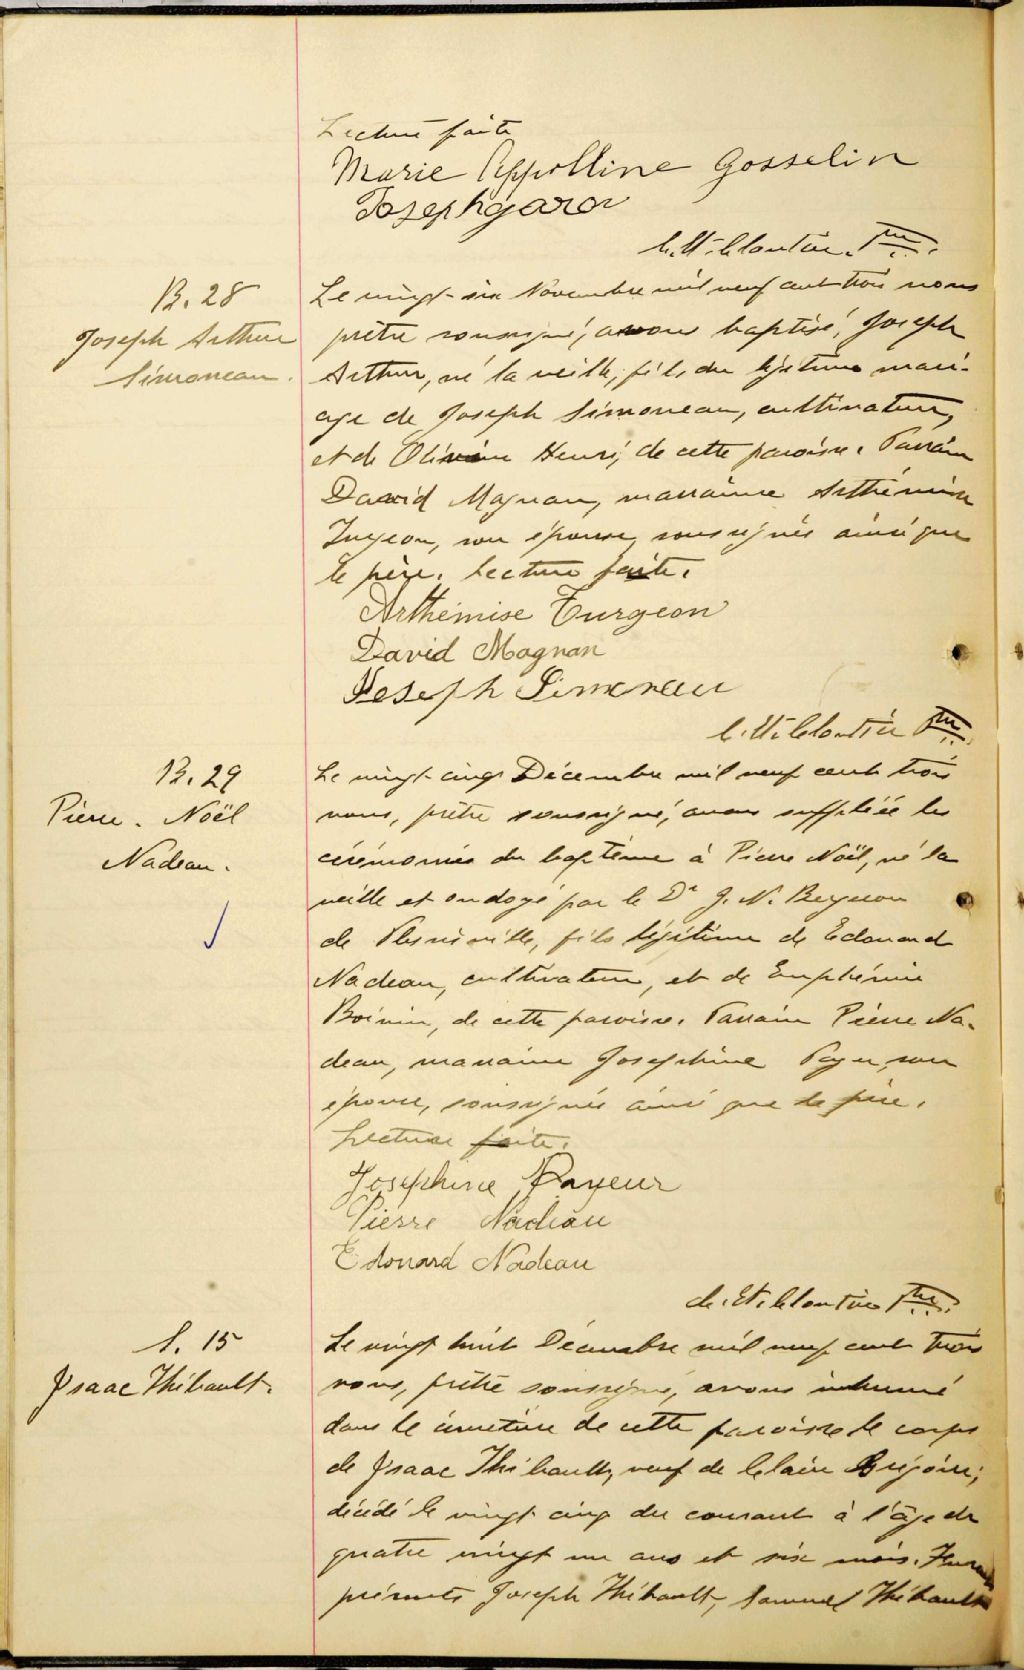 Lecture faite
Marie Appolline Gosselin
Joseph
Ptre.
B. 28
Joseph Arthur
Simoneau.
Le vingt-six Novembre mil neuf cent trois nous
prêtre soussigné, avons baptisé, Joseph
Arthur, né la veille, fils du légitime mari-
age de Joseph Simoneau, cultivateur,
et de Olivine Henri, de cette paroisse. Parrain
David Magnan, marraine Arthémise
Turgeon, son épouse, soussignés ainsi que
le père. Lecture faite.
Arthémise Turgeon
David Magnan
Joseph Simoneau
Ptre.
B. 29
Pierre. Noël
Nadeau.
Le vingt cinq Décembre mil neuf cent trois
nous, prêtre soussigné, avons suppléé les
cérémonies du baptême à Pierre Noël, né la
veille et ondoyé par le Dr J. N.
de Plessisville, fils légitime de Edouard
Nadeau, cultivateur, et de Euphémie
Boivin, de cette paroisse. Parrain Pierre Na-
deau, marraine Josephine Payeur, son
épouse, soussignés ainsi que le père.
Lecture faite.
Josephine Payeur
Pierre Nadeau
Edouard Nadeau
Ptre.
S. 15
Isaac Thibault.
Le vingt huit Décembre mil neuf cent trois
nous, prêtre soussigné, avons inhumé
dans le cimetière de cette paroisse le corps
de Isaac Thibault, veuf de Claire Grégoire,
décédé le vingt cinq du courant à l'âge de
quatre vingt un ans et six mois. Furent
présents Joseph Thibault, Samuel Thibault